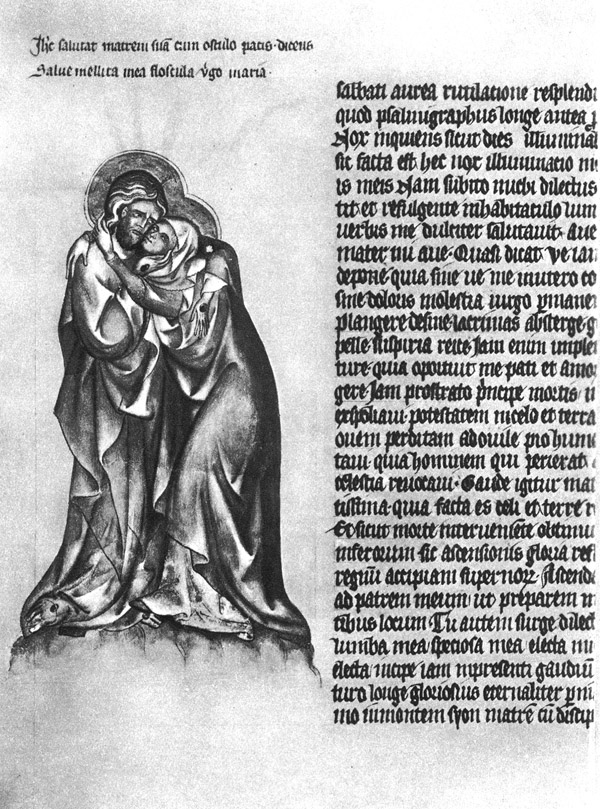 Ihc salutat matrem suā cum osculo pacis · dicens
Salue mellita mea floscula v̓go maria ·
sabbati aurea rutilatione resplend
quod psalmigraphus longe antea p
Nox inquiens sicut dies illumina
sic facta est hec nox illuminatio m
is meis Nam subito michi dilectus
tit et refulgente inhabitaculo lum
uerbis me dulciter salutauit aue
mater mi aue · Quasi dicat ve iam
depone · quia sine ve me inutero co
sine doloris molestia uirgo pmane
plangere desine · lacrimas absterge · g
pelle suspiria reice Iam enim imple
ture quia oportuit me pati et a
gere Iam prostrato pncipe mortis
expoliaui · potestatem in celo et terra
ouem perditam ad ouile pio hume
taui quia hominem qui perierat
celestia reuocaui · Gaude igitur ma
tissima quia facta es celi et terre r
Et sicut morte interueniente obtinui
inferorum sic ascensionis gloria
regnū accipiam supernorꝝ · Ascend
ad patrem meum ut preparem m
tibus locum · Tu autem surge dilec
lumba mea speciosa mea electa
electa incipe iam inpresenti gaudiū
turo longe gloriosius eternaliter
mo in montem syon matrē cū discip